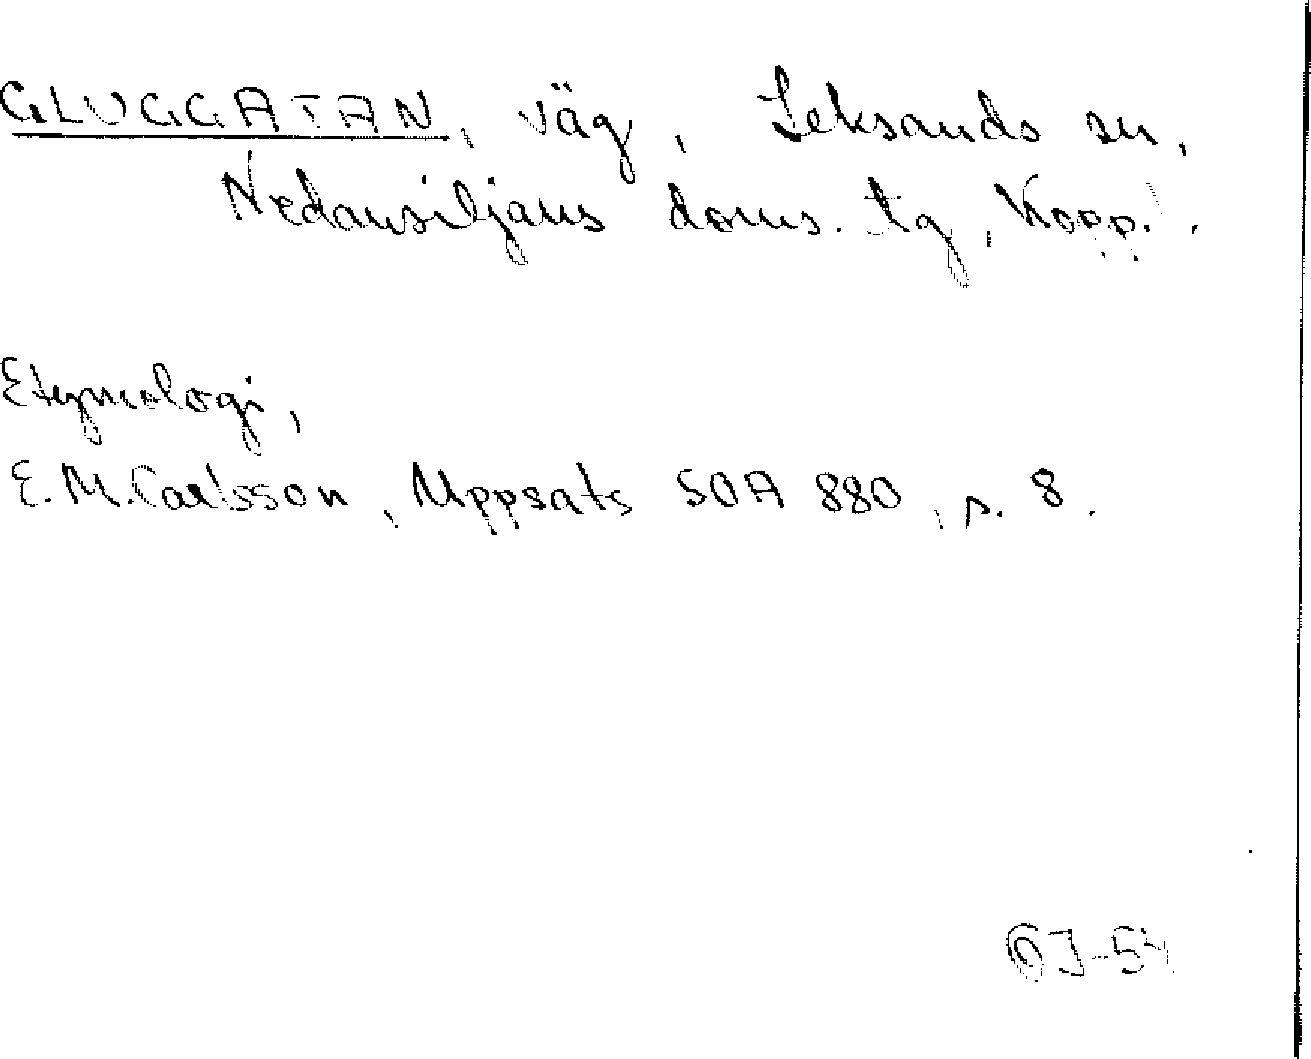 GLUGGATAN, väg, Leksands sn,
Nedansiljans doms. tg, Kopp.l.
Etymologi,
E.M.Carlsson, Uppsats SOA 880, s. 8.